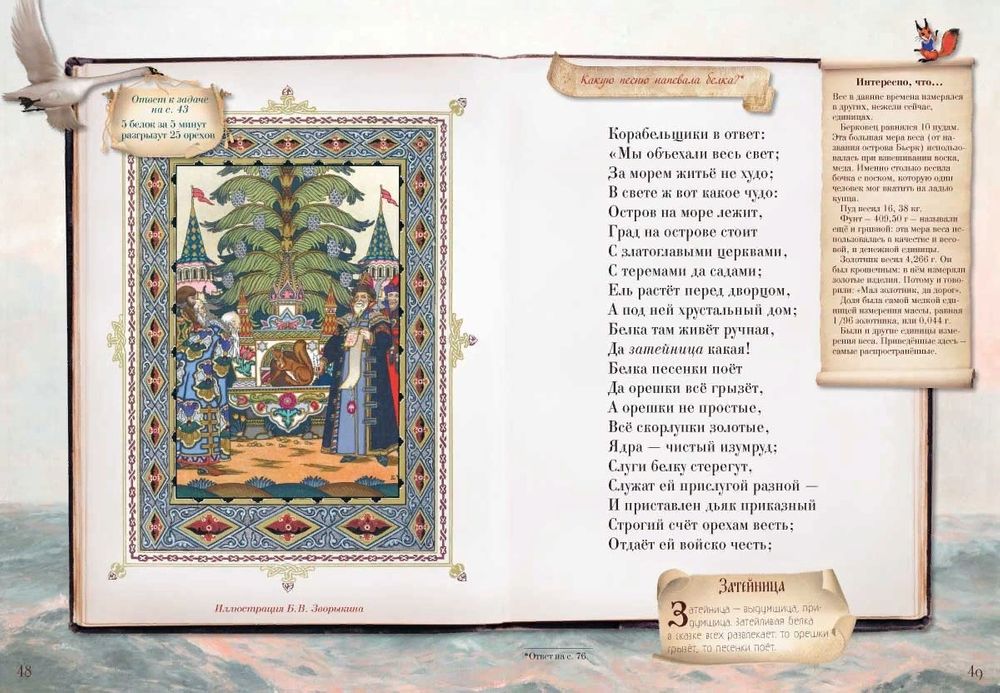 Ответ к задаче
на с. 43
5 белок за 5 минут
разгрызут 25 орехов
Иллюстрация Б. В. Зворыкина
48
Какую песню напевала белка?*
Корабельщики в ответ:
«Мы объехали весь свет;
За морем житьё не худо;
В свете ж вот какое чудо:
Остров на море лежит,
Град на острове стоит
С златоглавыми церквами,
С теремами да садами;
Ель растёт перед дворцом,
А под ней хрустальный дом;
Белка там живёт ручная,
Да затейница какая!
Белка песенки поёт
Да орешки всё грызёт,
А орешки не простые,
Всё скорлупки золотые,
Ядра — чистый изумруд;
Слуги белку стерегут,
Служат ей прислугой разной —
И приставлен дьяк приказный
Строгий счёт орехам весть;
Отдаёт ей войско честь;
Интересно, что…
Вес в давние времена измерялся
в других, нежели сейчас,
единицах.
Берковец равнялся 10 пудам.
Эта большая мера веса (от на-
звания острова Бьерк) использо-
валась при взвешивании воска,
меда. Именно столько весила
бочка с воском, которую один
человек мог вкатить на ладью
купца.
Пуд весил 16, 38 кг.
Фунт – 409,50 г – называли
ещё и гривной: эта мера веса ис-
пользовалась в качестве и весо-
вой, и денежной единицы.
Золотник весил 4,266 г. Он
был крошечным: в нём измеряли
золотые изделия. Потому и гово-
рили: «Мал золотник, да дорог».
Доля была самой мелкой еди-
ницей измерения массы, равная
1/96 золотника, или 0,044 г.
Были и другие единицы изме-
рения веса. Приведённые здесь –
самые распространённые.
Затейница
Затейница – выдумщица, при-
думщица. Затейливая белка
в сказке всех развлекает: то орешки
грызёт, то песенки поёт.
*Ответ на с. 76.
49